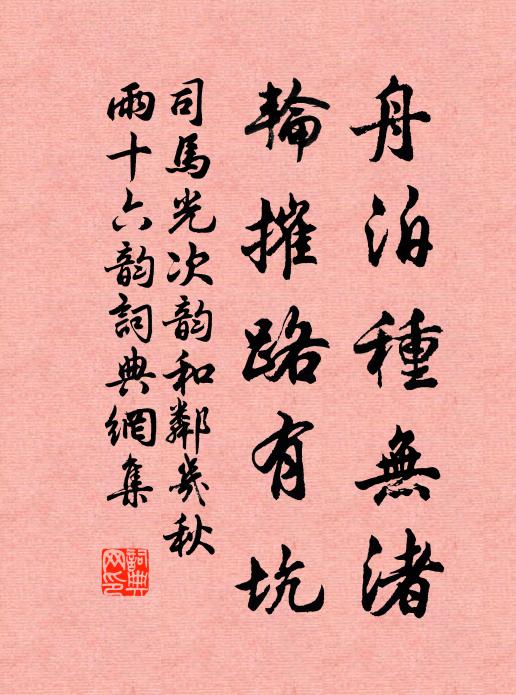 舟泊種無渚
輪摧路有坑
司馬光次韵和鄰幾秋
雨十六韵詞典網集
詞典網印